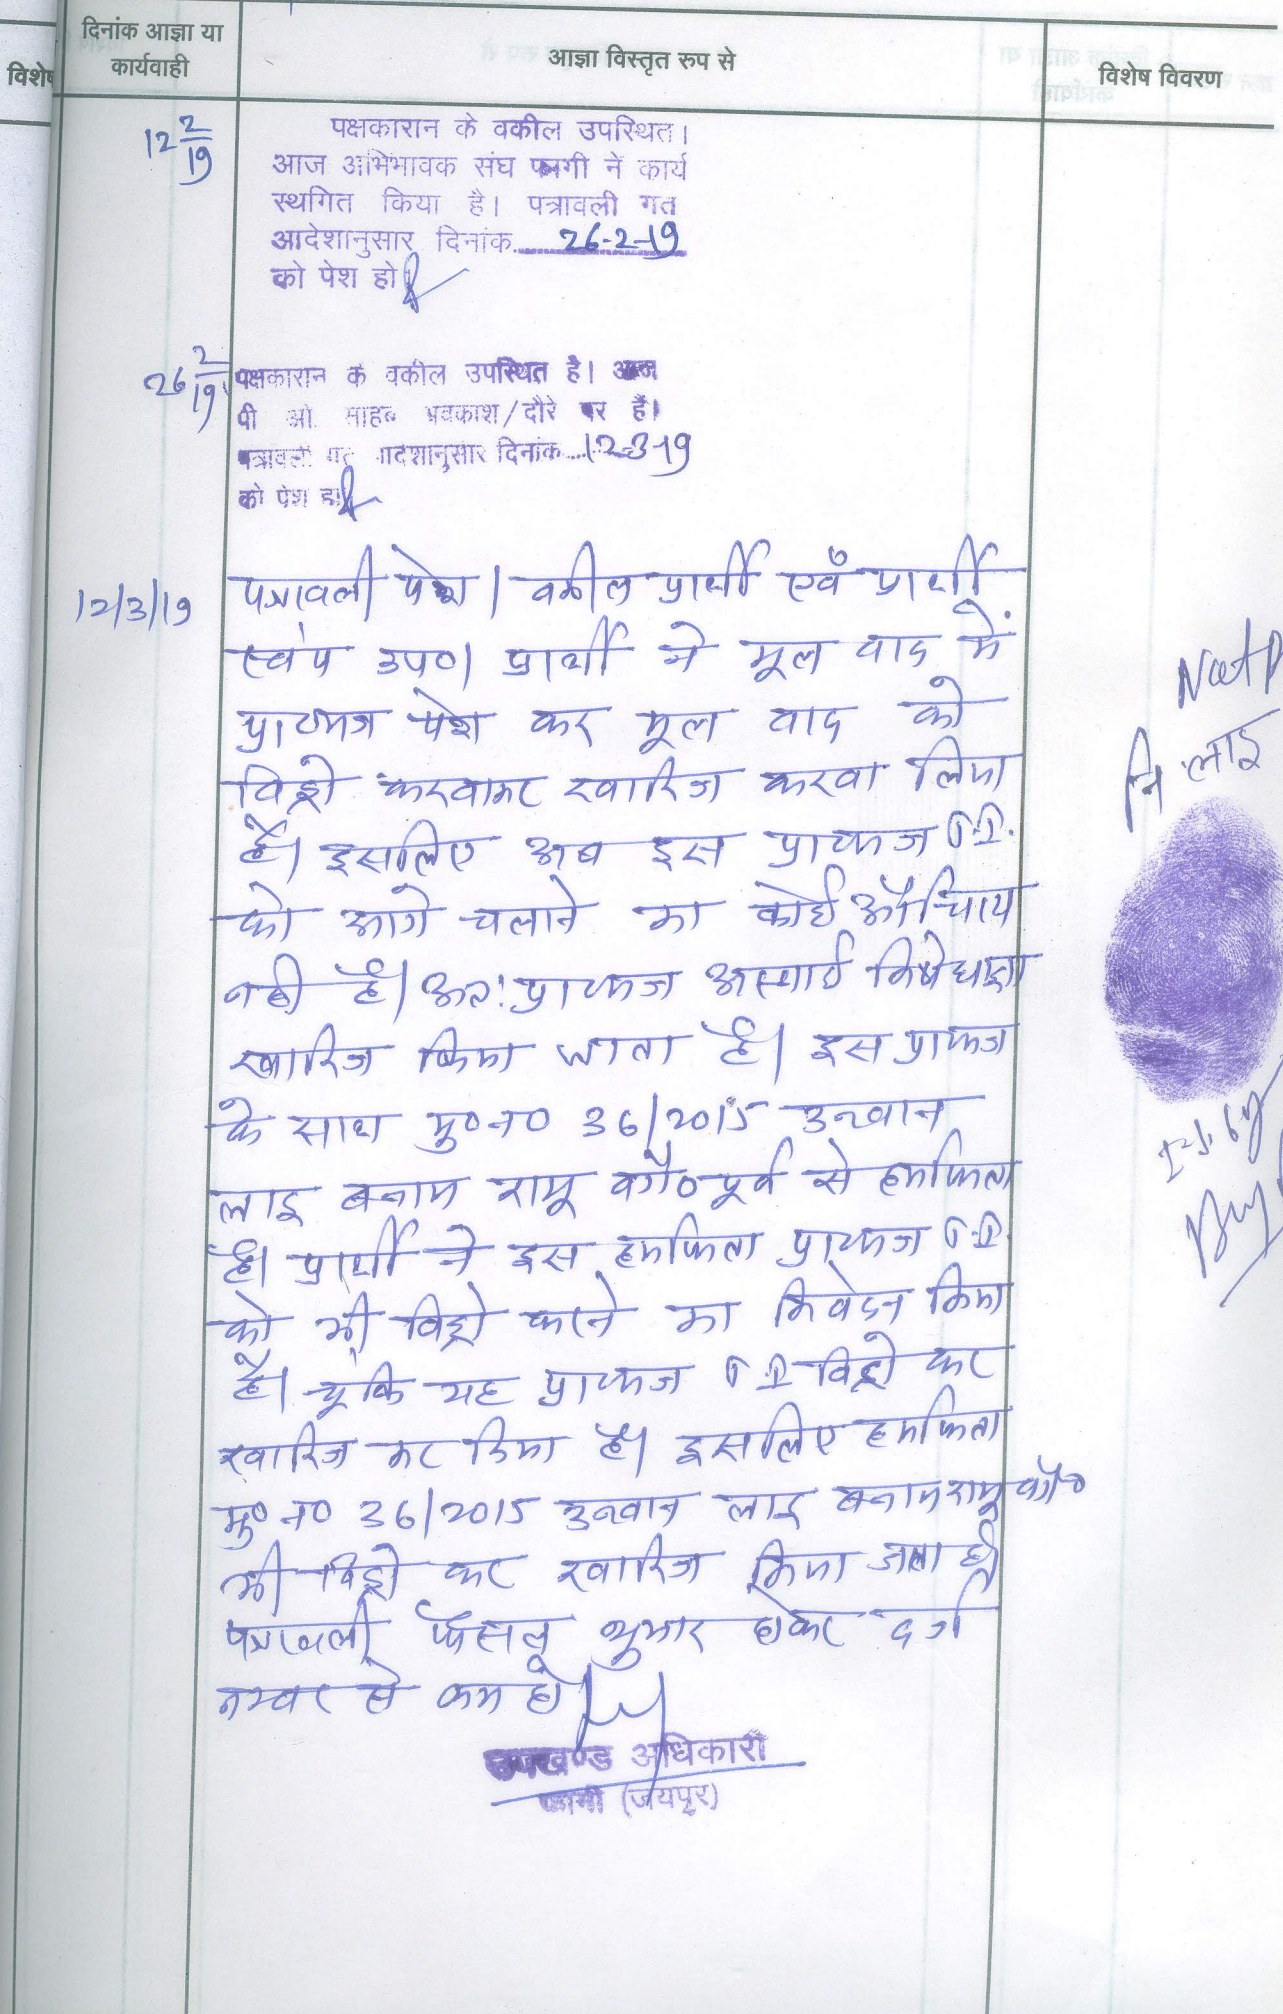 विशेष
दिनांक आज्ञा या
कार्यवाही
आज्ञा विस्तृत रुप से
विशेष विवरण
12 2/19
पक्षकारान के वकील उपस्थित।
आज अभिभावक संघ फागी ने कार्य
स्थगित किया है। पत्रावली गत
आदेशानुसार दिनांक 26-2-19
को पेश हो
26 2/19
पक्षकारान के वकील उपस्थित है। आज
पी ओ साहब अवकाश/दौरे पर है।
पत्रावली गत आदेशानुसार दिनांक 12-3-19
को पेश हो
12/3/19
पत्रावली पेश। वकील प्रार्थी एवं प्रार्थी
स्वयं उप०। प्रार्थी ने मूल वाद में
प्रा०पत्र पेश कर मूल वाद को
विड्रो करवाकर खारिज करवा लिया
है। इसलिए अब इस प्रा०पत्र T.I.
को आगे चलाने का कोई औचित्य
नही है। अतः प्रा०पत्र अस्थाई निषेधाज्ञा
खारिज किया जाता है। इस प्रा०पत्र
के साथ मु०न० 36/2015 उनवान
लाडू बनाम रामू वगै० पूर्व से हमफिता
है। प्रार्थी ने इस हमफिता प्रा०पत्र T.I.
को भी विड्रो करने का निवेदन किया
है। चूंकि यह प्रा०पत्र T I विड्रो कर
खारिज कर दिया है। इसलिए हमफिता
मु० न० 36/2015 उनवान लाडू बनाम रामू वगै०
भी विड्रो कर खारिज किया जाता है।
पत्रावली फैसल शुमार होकर दर्ज
नम्बर से कम हो।
उपखण्ड अधिकारी
फागी (जयपुर)
नि लाडू